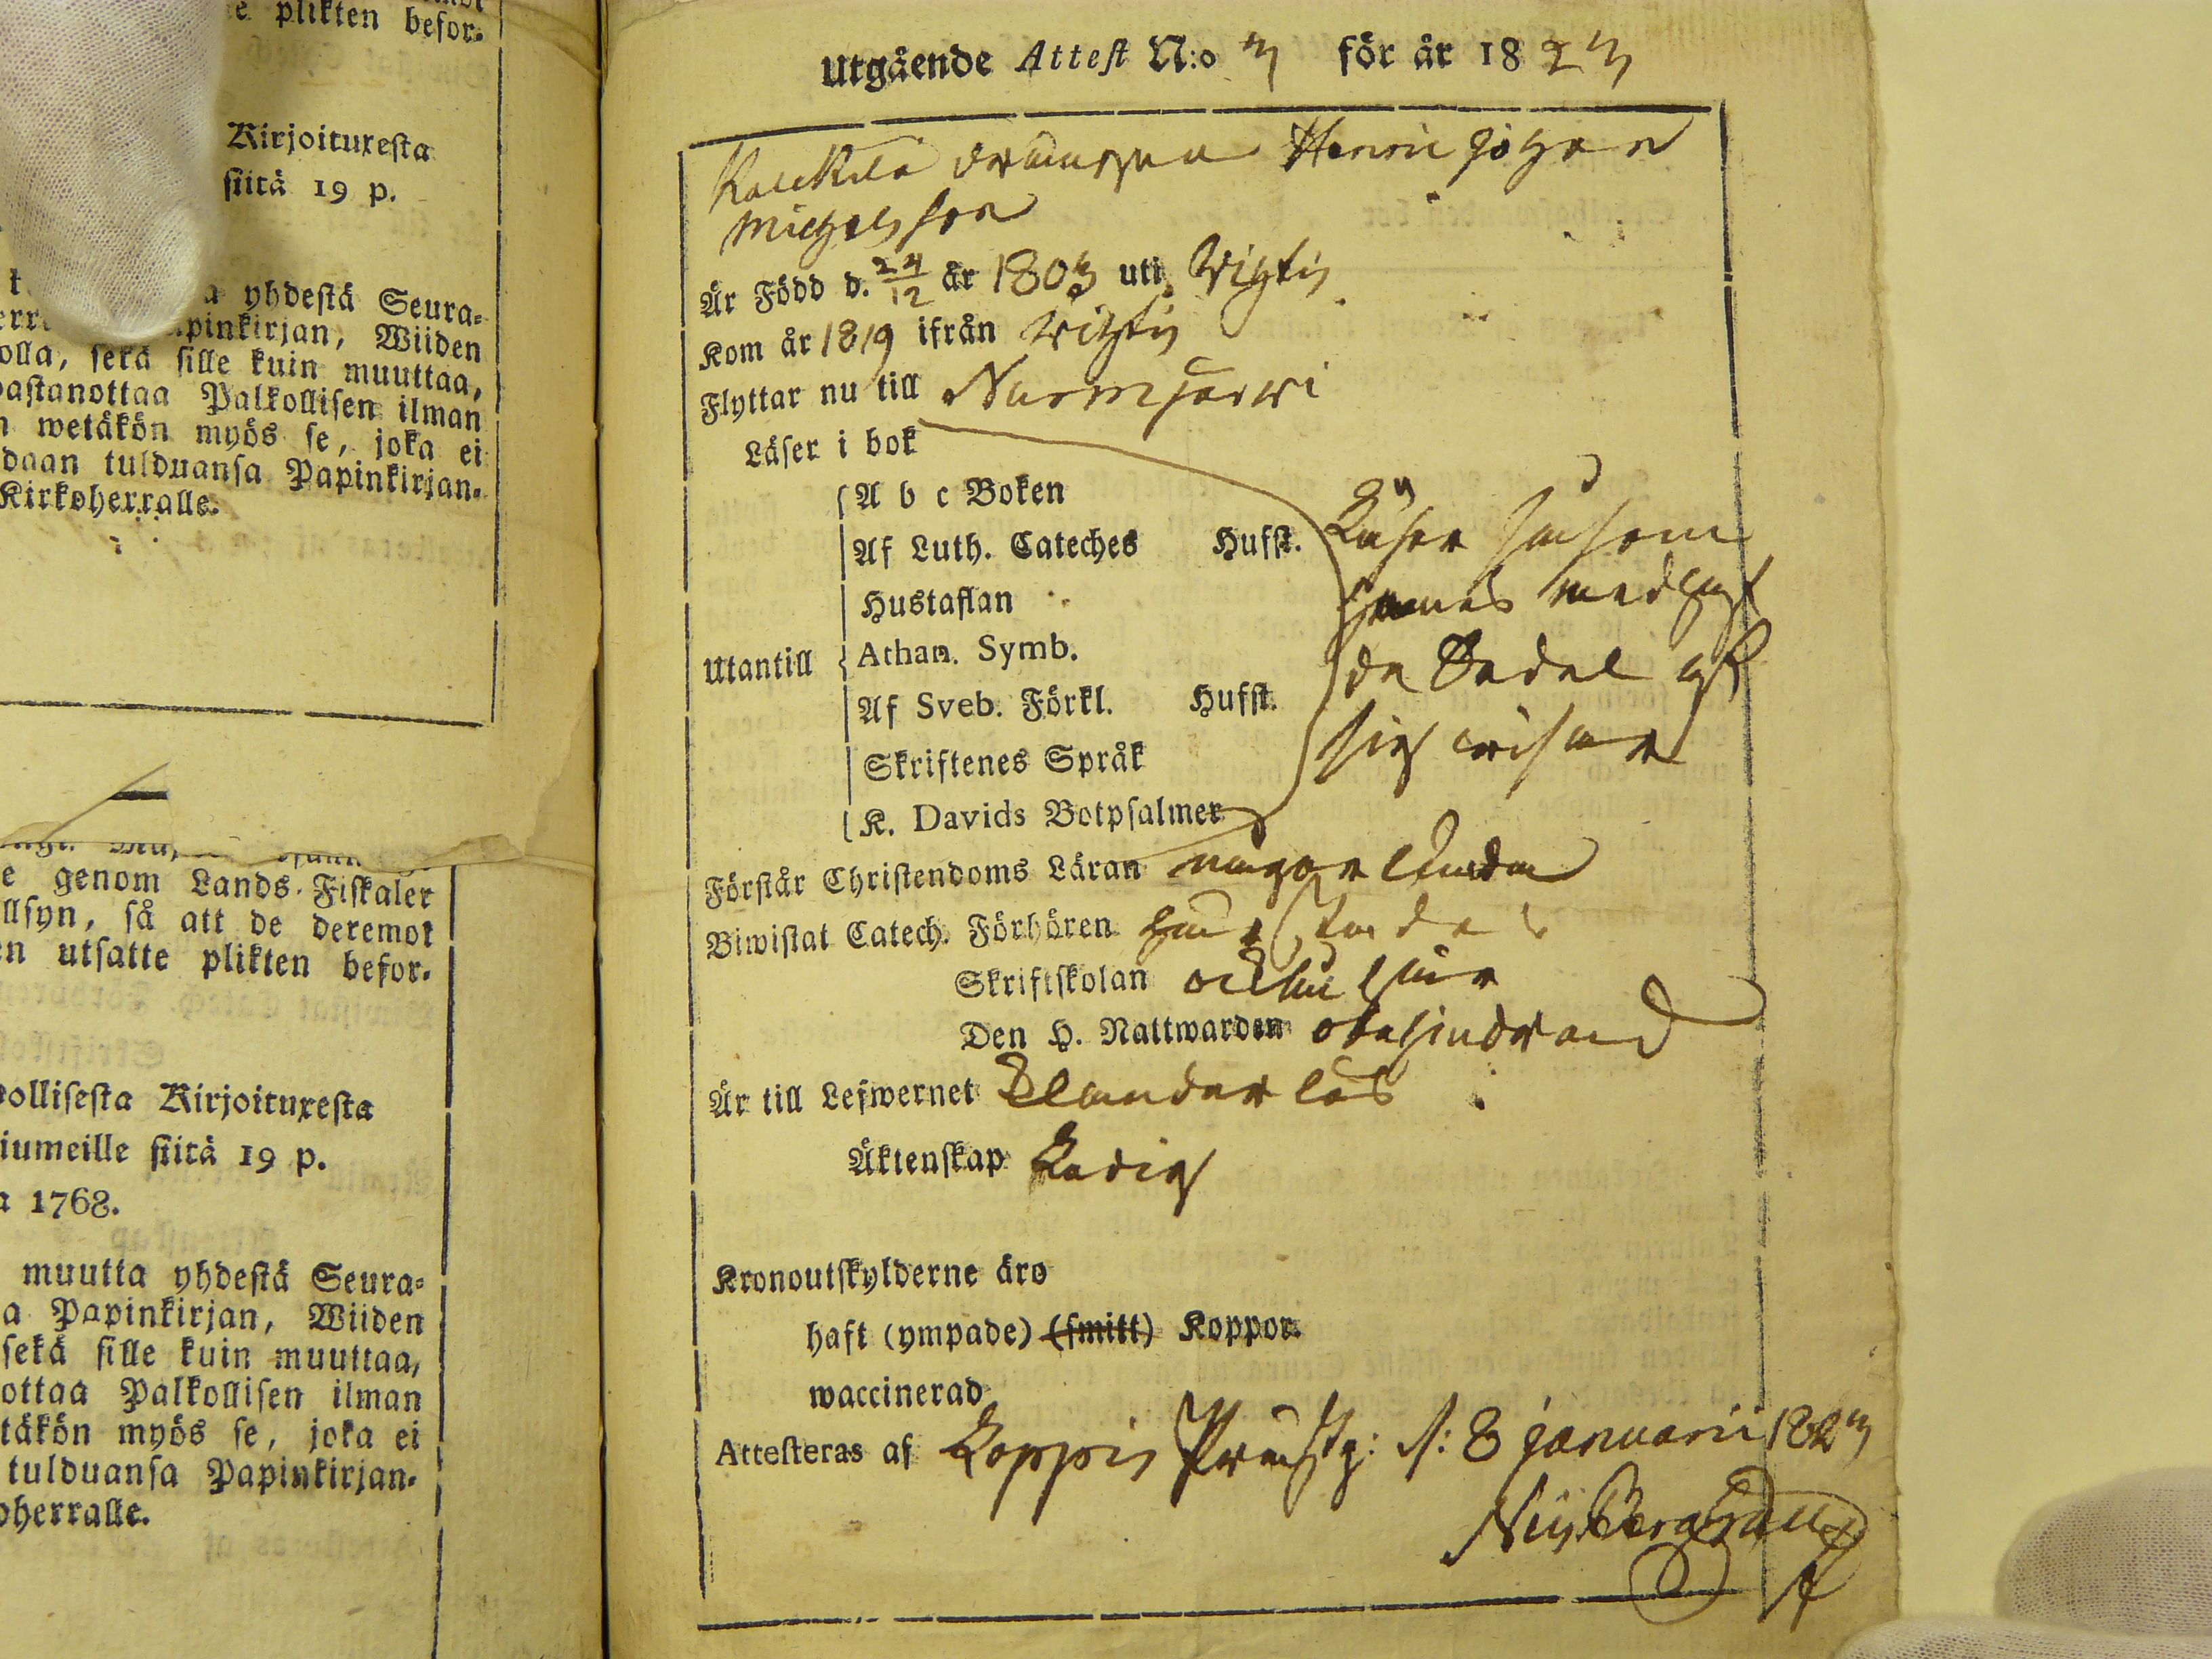 e plikten befor-
Kirjoituxesta
siitä 19 p.
yhdestä Seura-
pinkirjan, Wiiden
olla, sekä sille kuin muuttaa,
astanottaa Palkollisen ilman
wetäkön myös se, joka ei
daan tulduansa Papinkirjan-
Kirkoherralle.
e genom Lands-Fiskaler
llsyn, så att de deremot
en utsatte plikten befor-
ollisesta Kirjoituxesta
iumeille siitä 19 p.
a 1768.
muutta yhdestä Seura-
a Papinkirjan, Wiiden
sekä sille kuin muuttaa,
ottaa Palkollisen ilman
täkön myös se, joka ei
tulduansa Papinkirjan-
oherralle.
Utgående Attest N:o 3 för år 1823
drängen Henric Johan
Michelsson
Är Född d. 24/12 år 1803 uti Wichtis
Kom år 1819 ifrån Wichtis
Flyttar nu till Nurmijärwi
Läser i bok
A b c Boken
Af Luth. Cateches Hufst. Läser såsom
Hustaflan hennes medlagt
Utantill Athan. Symb. de Sedel
Af Sveb. Förkl. Hufst.
Skriftenes Språk sig wisar
K. Davids Botpsalmer
Förstår Christendoms Läran någorlunda
Biwistat Catech. Förhören
Skriftskolan
Den H. Nattwarden obehindrad
Är till Lefwernet Klanderlös
Äktenskap Ledig
Kronoutskylderne äro
haft (ympade) (smitt) Koppor.
waccinerad
Attesteras af Loppis Prästg: d: 8 Januarii 1823